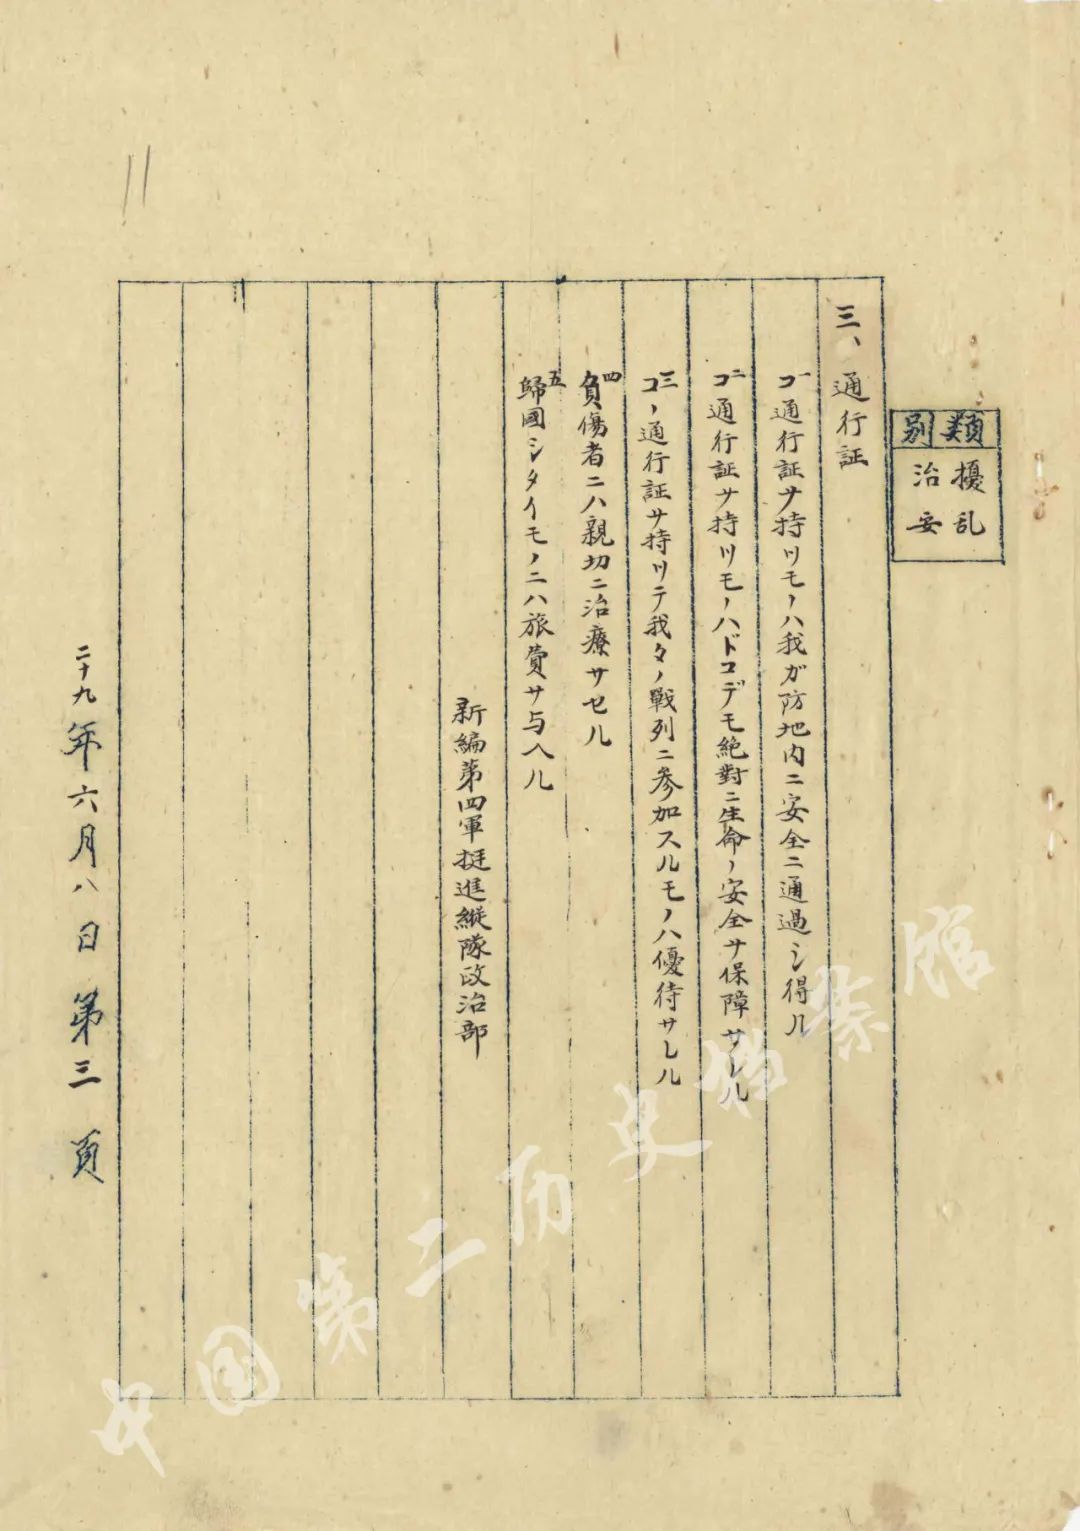 類別
擾乱
治安
三、通行証
一 コ通行証サ持ツモノハ我ガ防地内ニ安全ニ通過シ得ル
二 コ通行証サ持ツモノハドコデモ絶對ニ生命ノ安全サ保障サレル
三 コノ通行証サ持ツテ我々ノ戰列ニ参加スルモノハ優待サレル
四 負傷者ニハ親切ニ治療サセル
五 歸國シタイモノニハ旅費サ与ヘル
新編第四軍挺進縱隊政治部
二十九年六月八日第三頁
11
中国第二历史档案馆